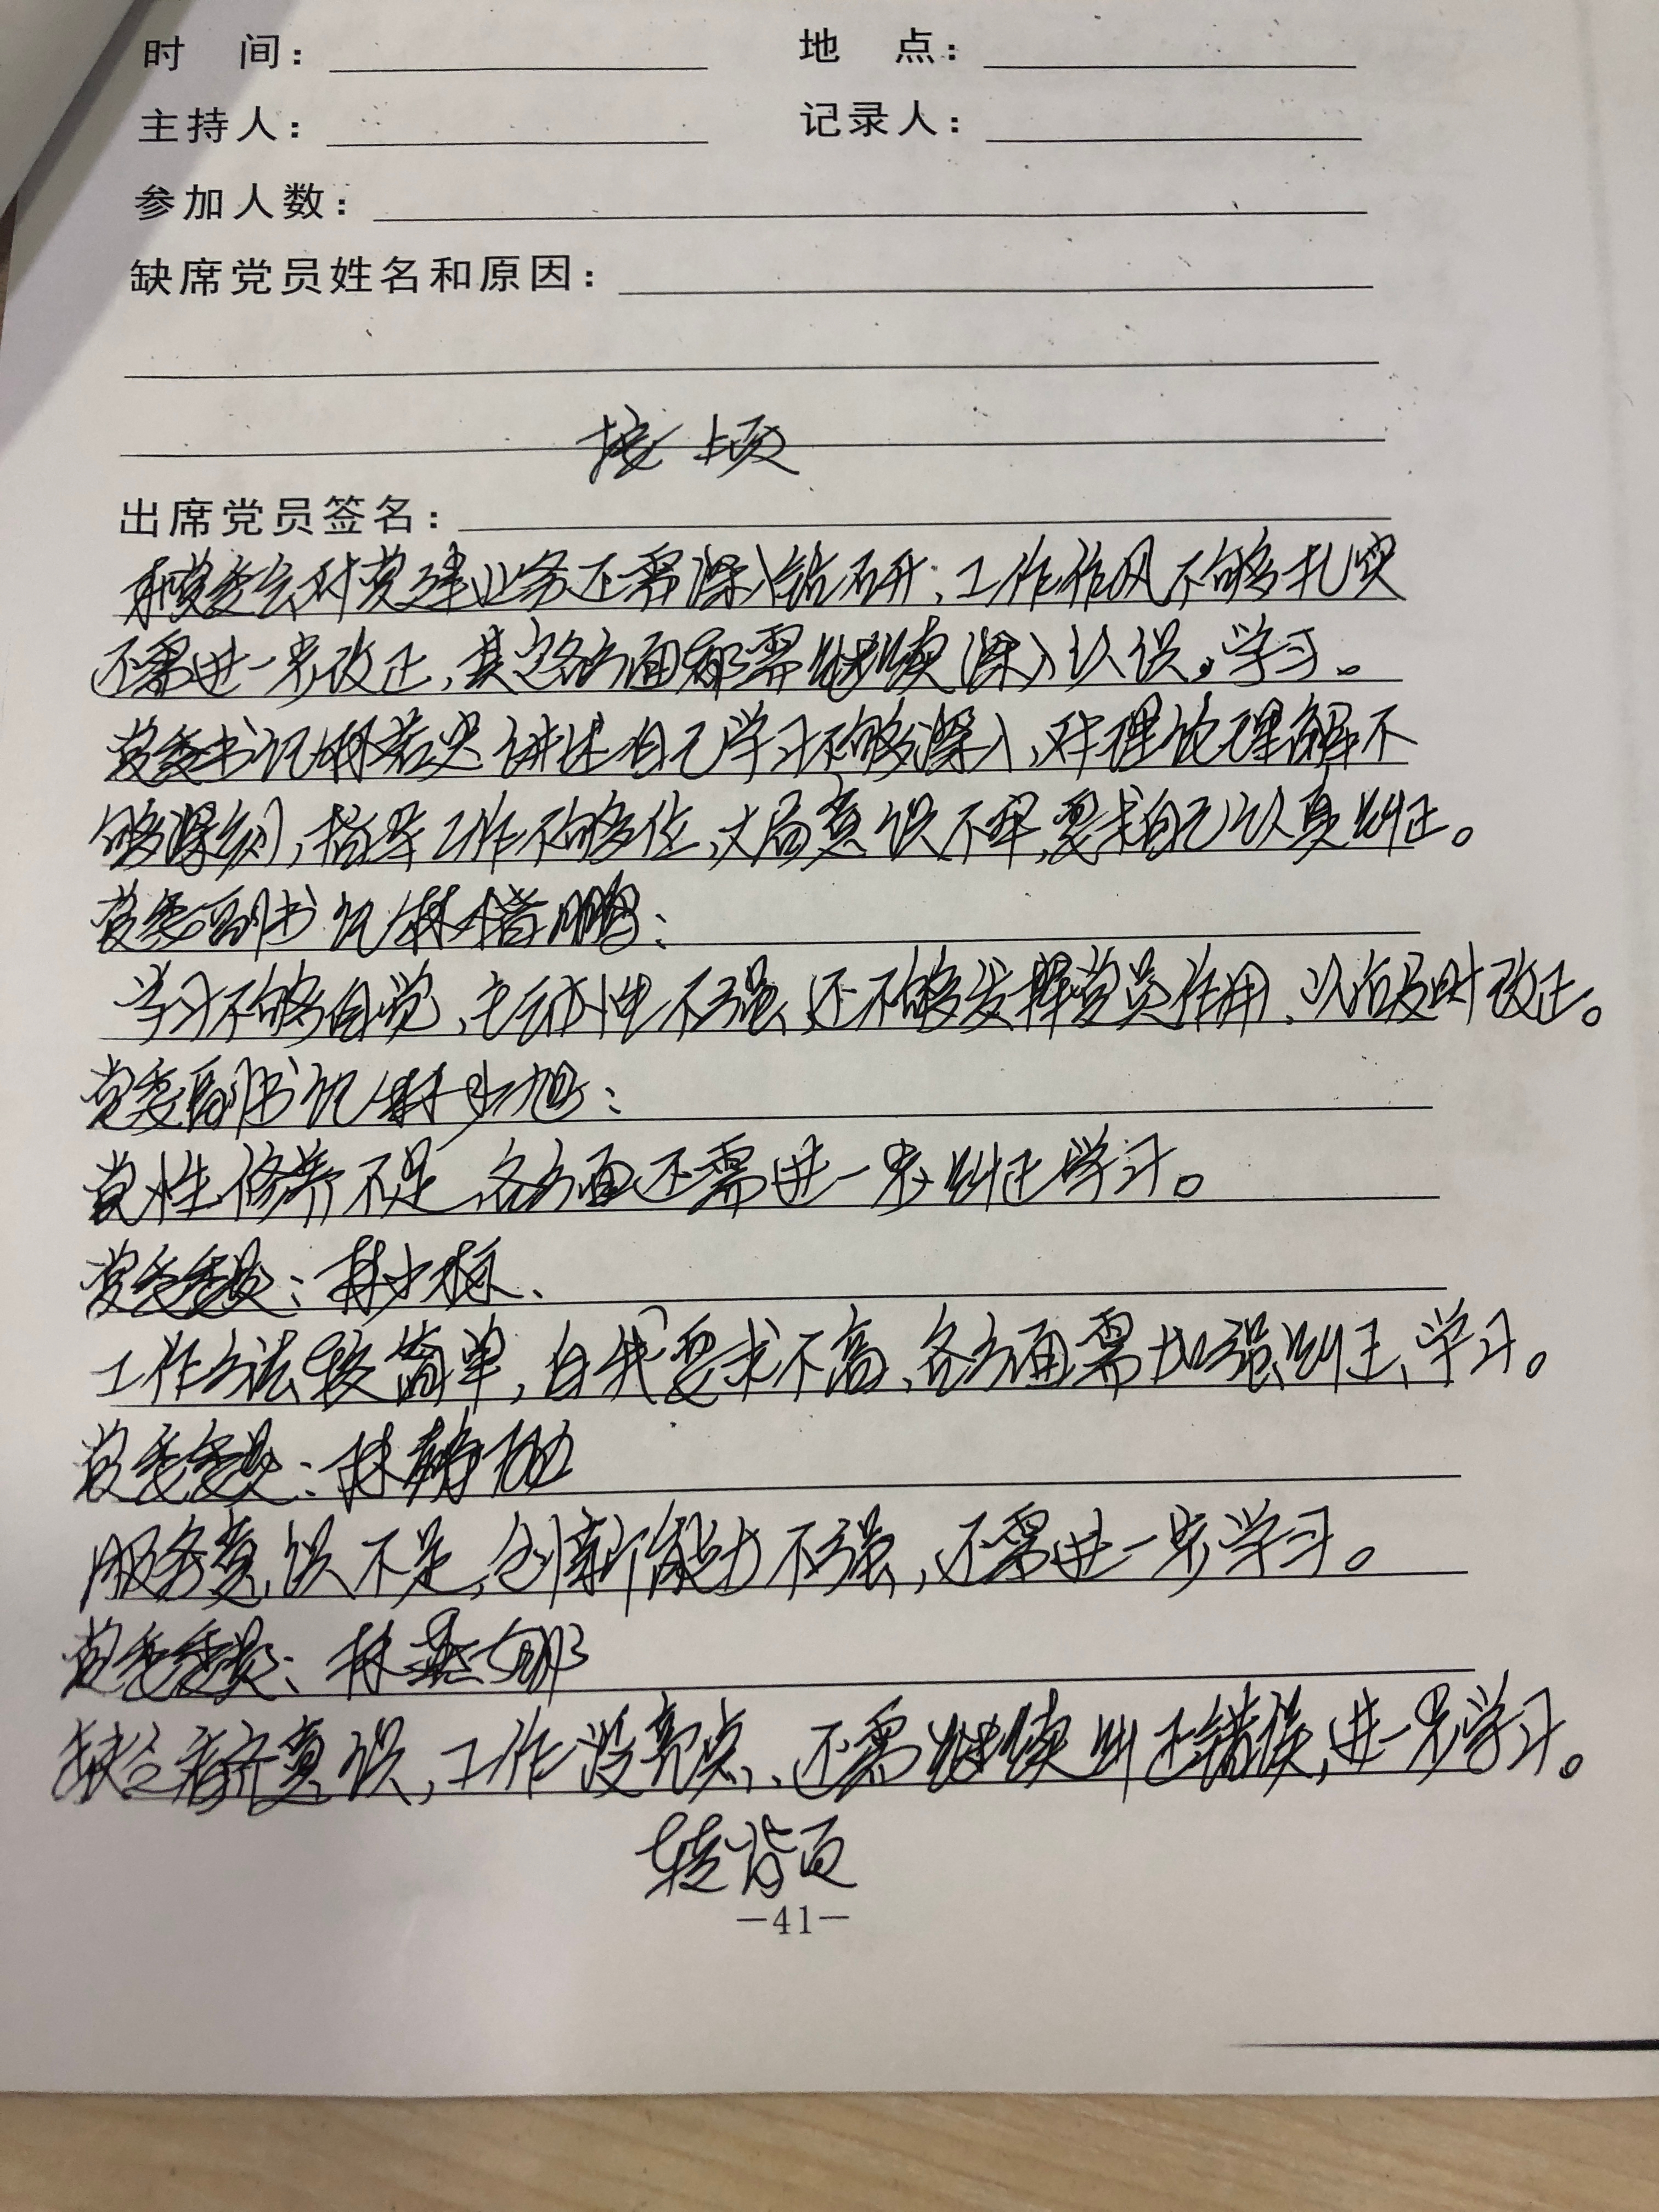 时 间： 地 点：
主持人： 记录人：
参加人数：
缺席党员姓名和原因：
接上页
出席党员签名：
党委会对党建业务还需深入钻研，工作作风不够扎实
还需进一步改正，其它各方面都需继续深入认识，学习。
党委书记林若忠讲述自己学习不够深入，对理论理解不
够深刻，指导工作不够位，大局意识不牢，要求自己认真纠正。
党委副书记林楷鹏：
学习不够自觉，主动性不强，还不够发挥党员作用，以后及时改正。
党委副书记林少旭：
党性修养不足，各方面还需进一步纠正学习。
党委委员：林少
工作方法较简单，自我要求不高，各方面需加强纠正、学习。
党委委员：林
服务意识不足，创新能力不强，还需进一步学习。
党委委员：林燕娜
缺乏看齐意识，工作没亮点，还需继续纠正错误，进一步学习。
转背页
-41-